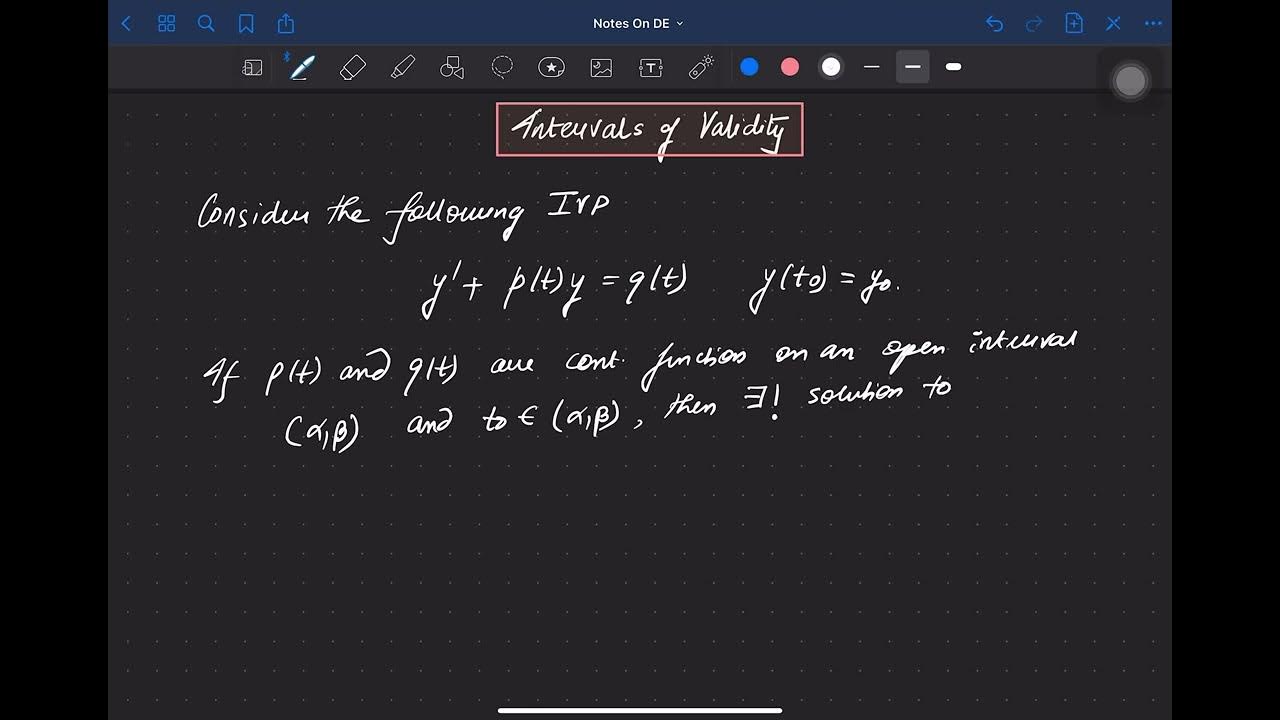 Notes On DE
T
Intervals of Validity
Consider the following IVP
y' + p(t)y = g(t) y(t₀) = y₀.
If p(t) and g(t) are cont. function on an open interval
(α,β) and t₀ ∈ (α,β), then ∃! solution to